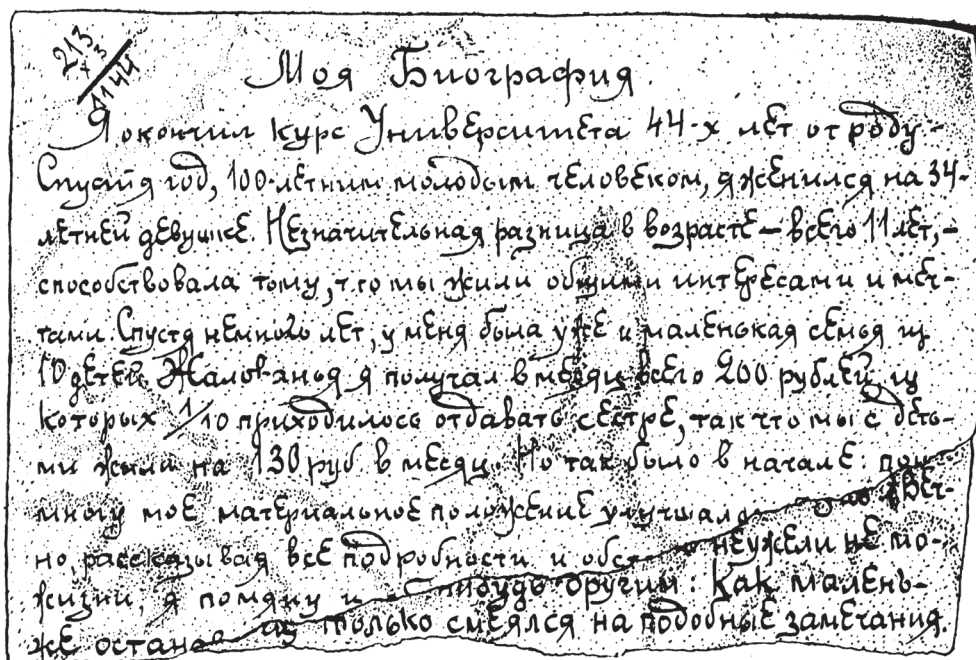 213
×3
1144
Моя Биография.
Я окончил курс Университета 44-х лет от роду.-
Спустя год, 100-летним молодым человеком, я женился на 34-
летней девушке. Незначительная разница в возрасте – всего 11 лет,-
способствовала тому, что мы жили общими интересами и меч-
тами. Спустя немного лет, у меня была уже и маленькая семья из
10 детей. Жалованья я получал в месяц всего 200 рублей, из
которых 1/10 приходилось отдавать сестре, так что мы с деть-
ми жили на 130 руб. в месяц. Но так было в начале: пон
многу мое материальное положение улучшало
но, рассказывая все подробности и обст неужели не мо-
жизни, я помяну и нибудь другим: Как малень-
же останов из только смеялся на подобные замечания.